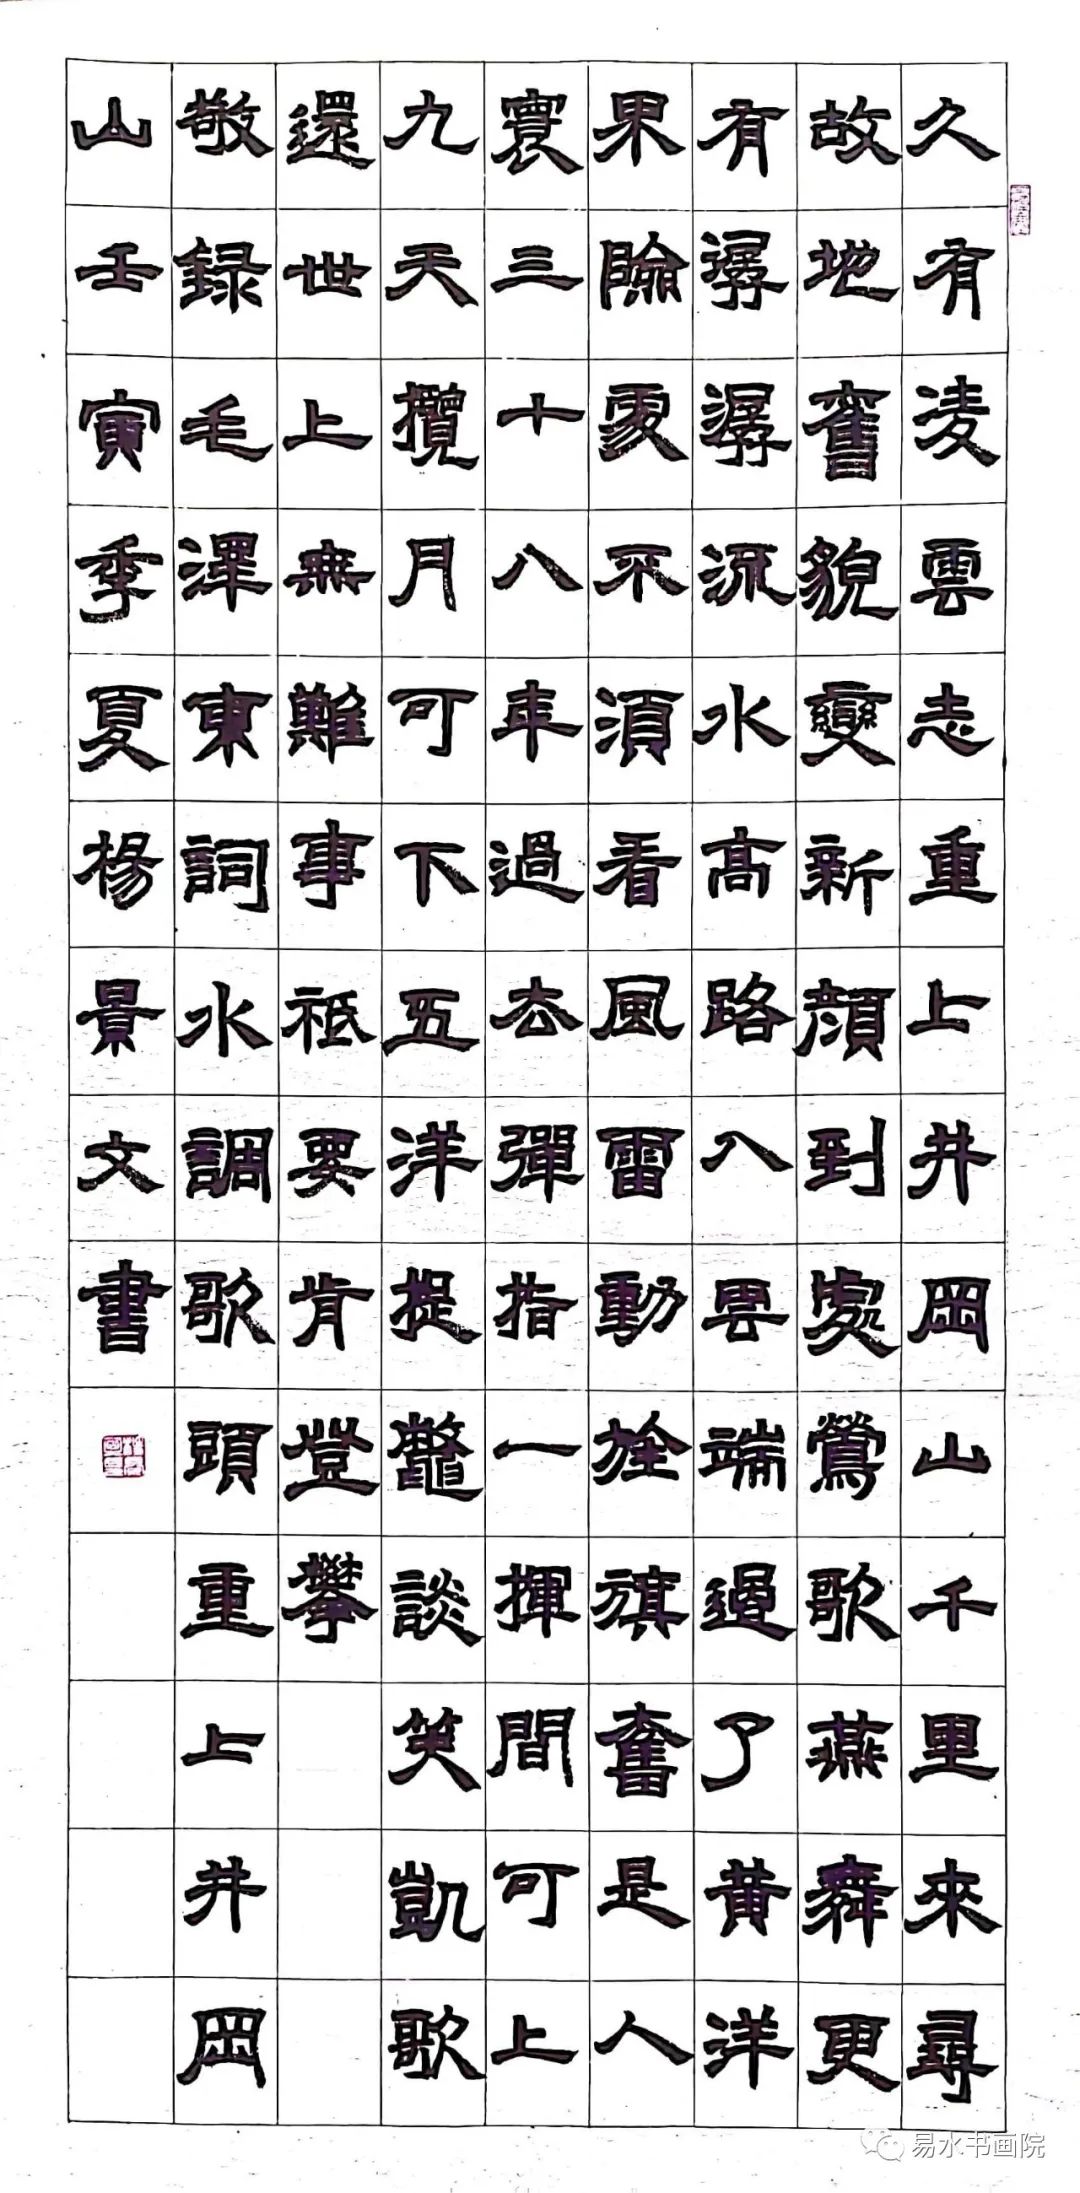 久有凌雲志重上井岡山千里來尋
故地舊貌變新顏到處鶯歌燕舞更
有潺潺流水高路入雲端過了黄洋
界險處不須看風雷動旌旗奮是人
寰三十八年過去彈指一揮間可上
九天攬月可下五洋捉鱉談笑凱歌
還世上無難事祗要肯登攀
敬録毛澤東詞水調歌頭重上井岡
山壬寅季夏楊景文書
易水书画院